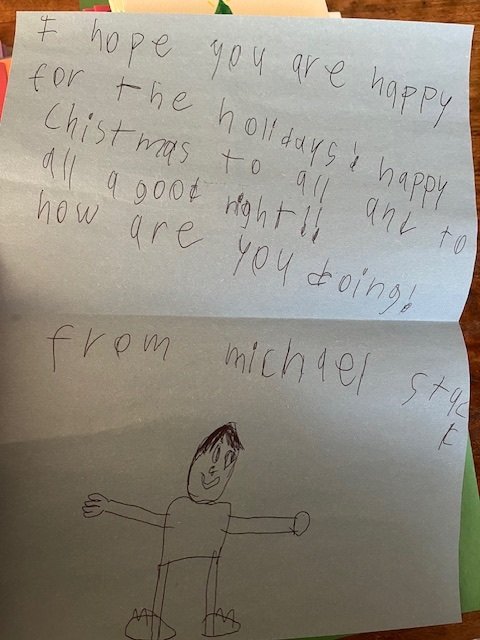 I hope you are happy
for the holidays! happy
Chistmas to all and to
all a good night!!
how are you doing!
from michael stac
k